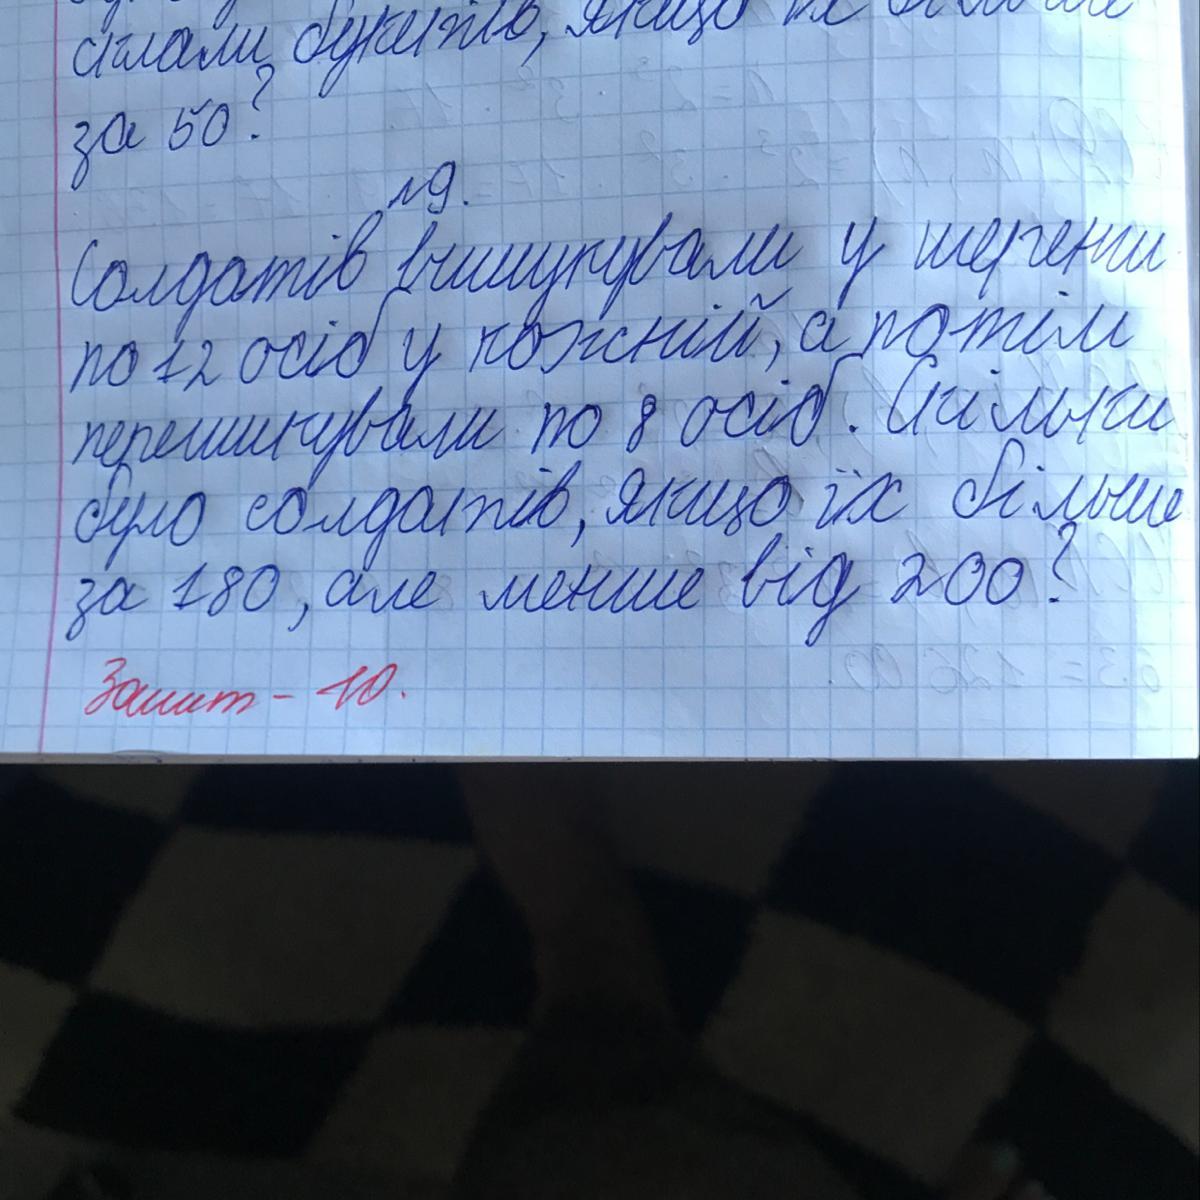 склали букетів, якщо їх більше
за 50?
№9.
Солдатів вишукували у шеренги
по 12 осіб у кожній, а потім
перешикували по 8 осіб. Скільки
було солдатів, якщо їх більше
за 180, але менше від 200?
- 10.